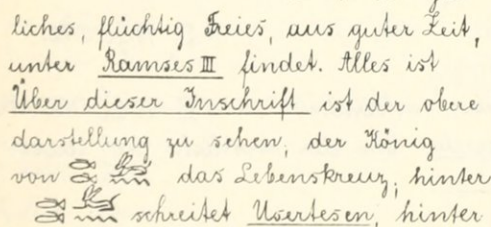 liches, flüchtig Freies, aus guter Zeit,
unter Ramses III findet. Alles ist
Über dieser Inschrift ist der obere
darstellung zu sehen, der König
von das Lebenskreuz, hinter
schreitet Usertesen, hinter